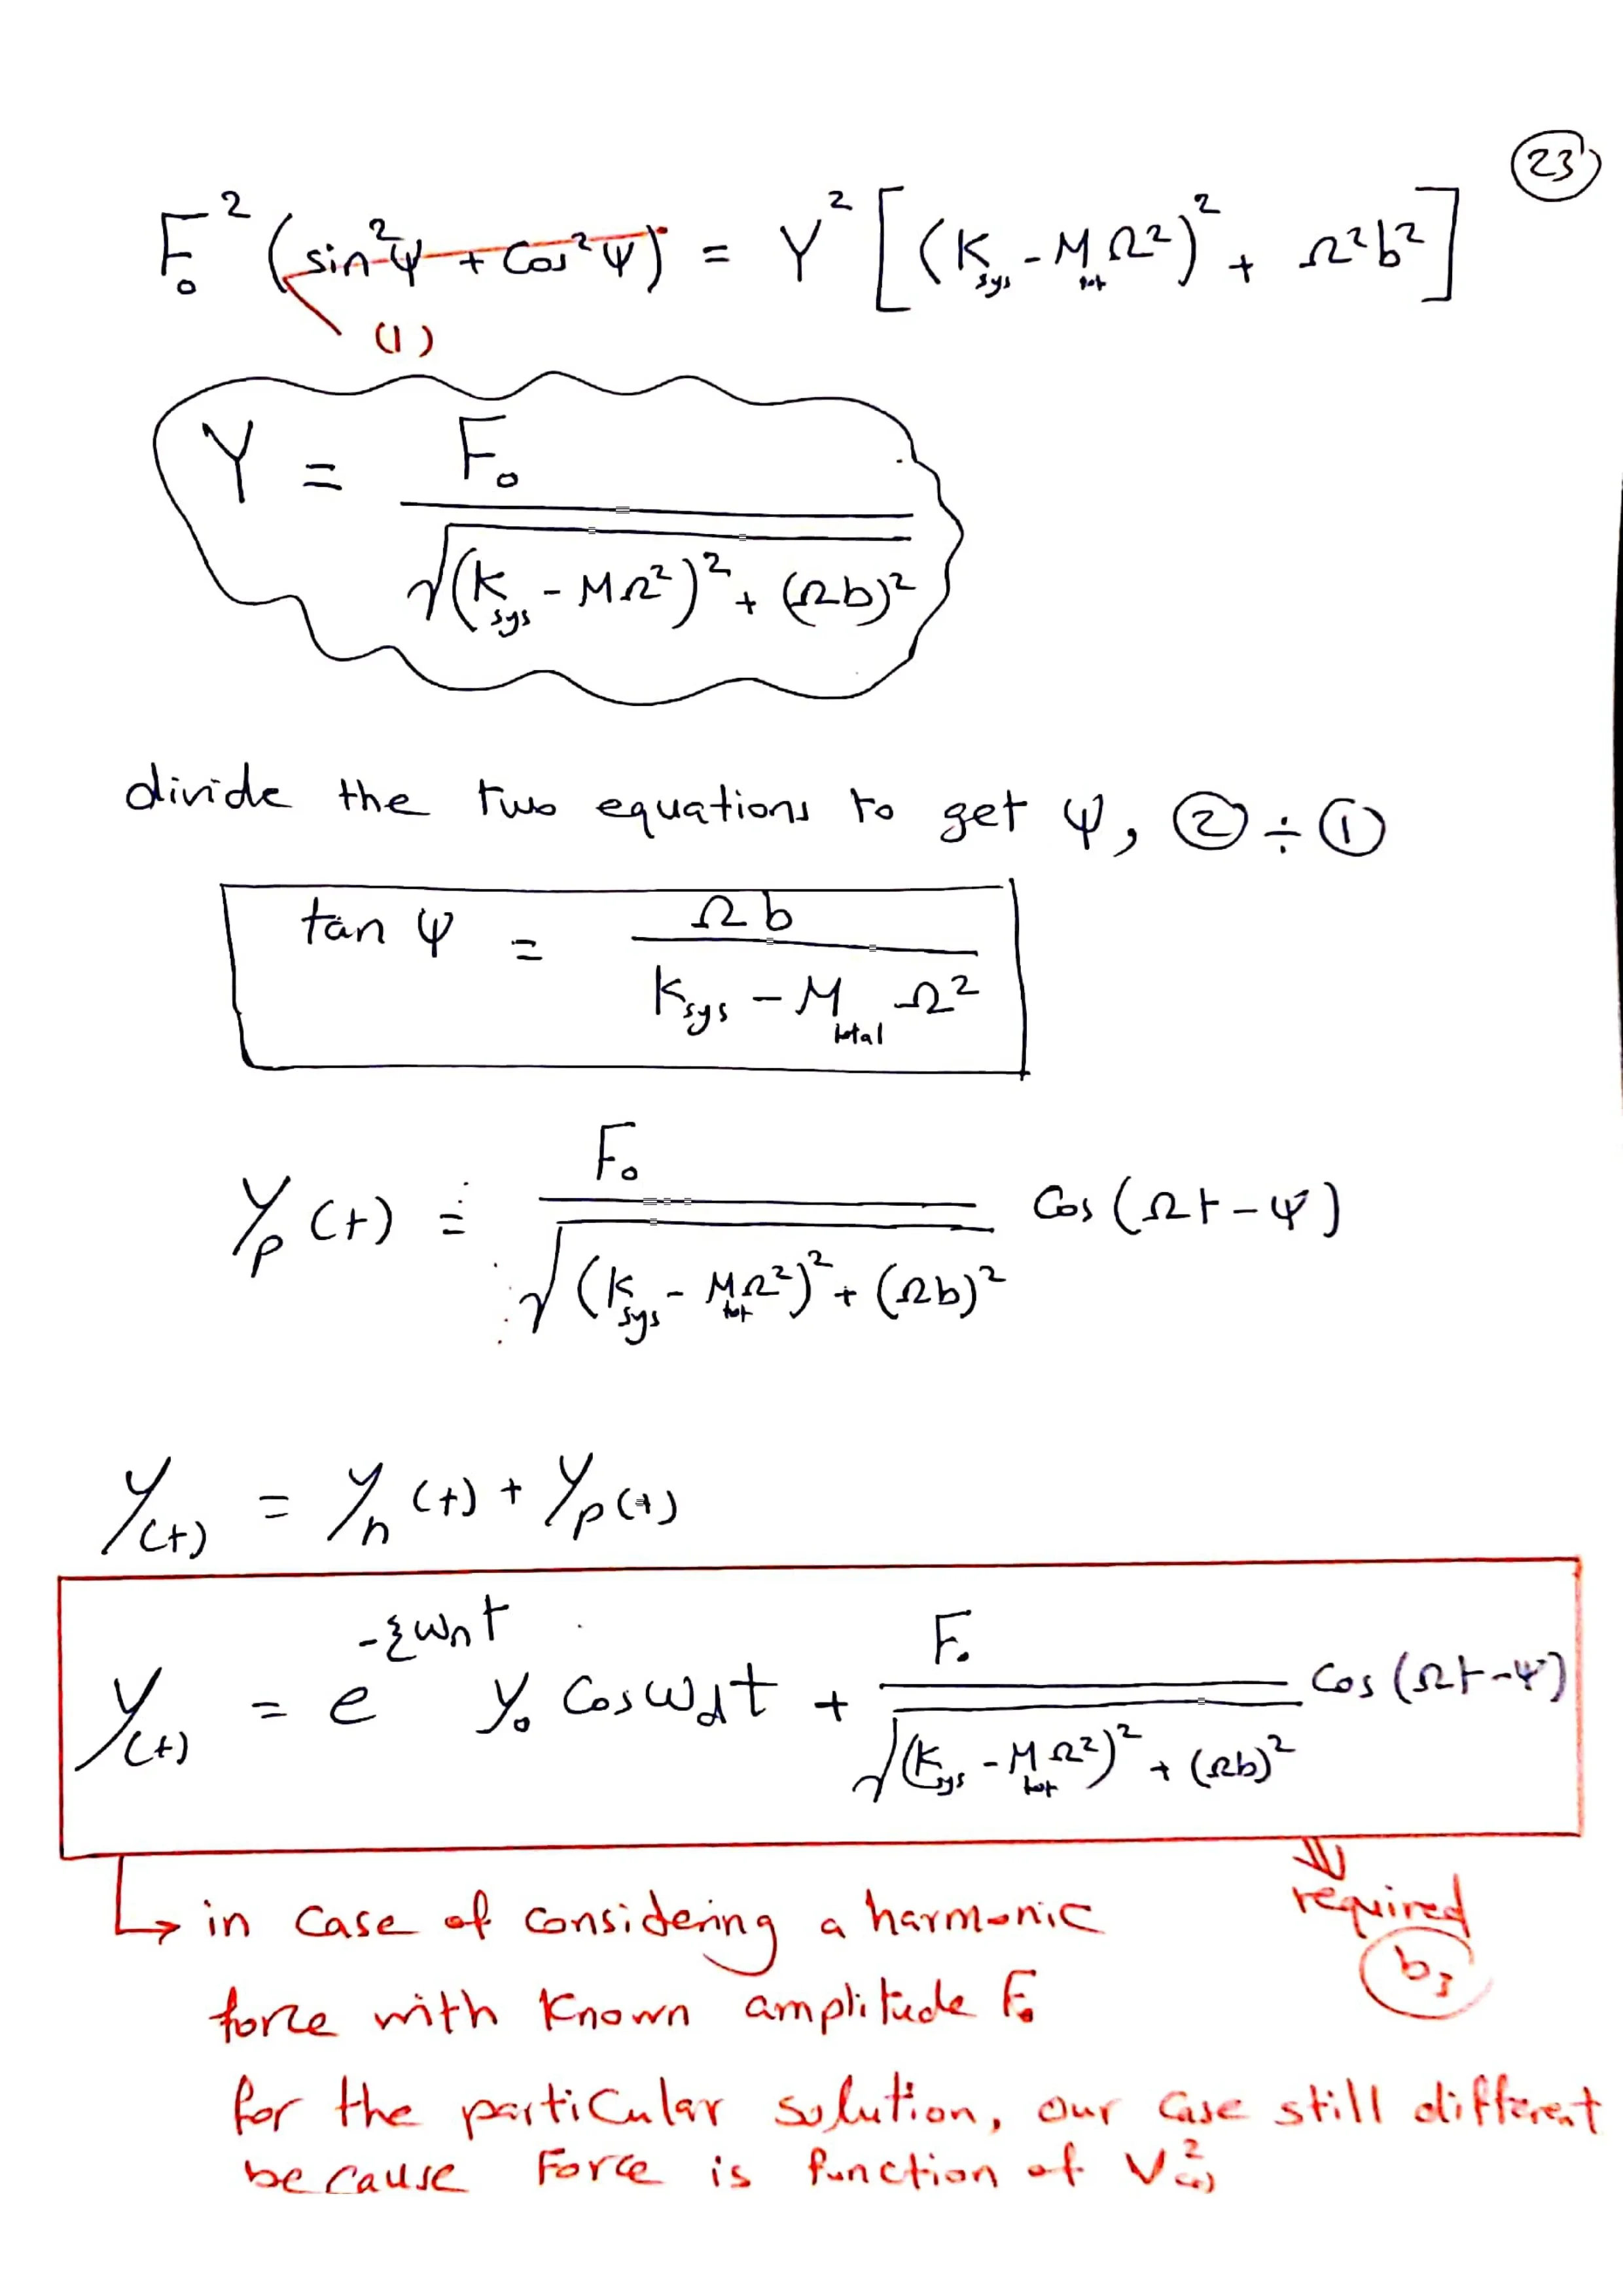 23
F₀² (sin²ψ + Cos²ψ) = Y² [(K_sys - M_tot Ω²)² + Ω²b²]
(1)
Y = F₀ / √((K_sys - MΩ²)² + (Ωb)²)
divide the two equations to get ψ, ② ÷ ①
tan ψ = Ωb / (K_sys - M_total Ω²)
y_p(t) = F₀ / √((K_sys - M_tot Ω²)² + (Ωb)²) Cos(Ωt - ψ)
y(t) = y_h(t) + y_p(t)
y(t) = e^(-ξω_n t) y₀ Cos ω_d t + F₀ / √((K_sys - M_tot Ω²)² + (Ωb)²) Cos(Ωt - ψ)
required
b₃
in case of considering a harmonic
force with known amplitude F₀
for the particular solution, our case still different
because Force is function of V²(t)